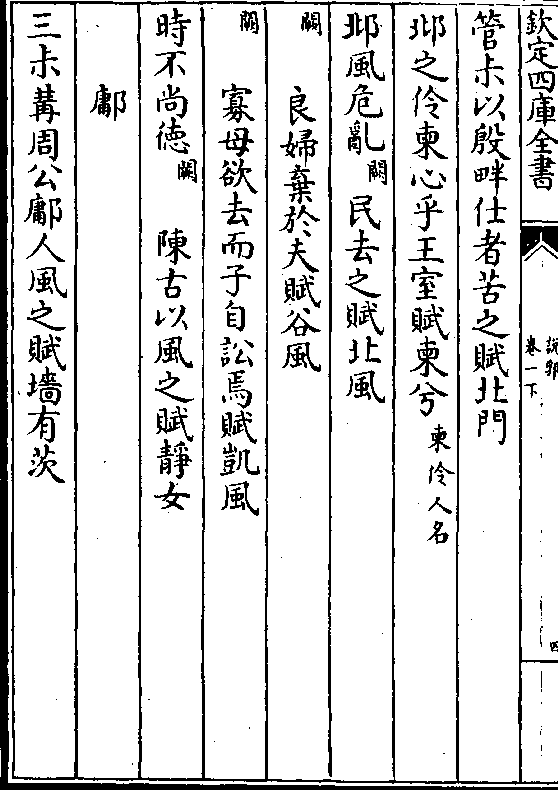 欽定四庫全書
說郛
卷一下
四
管尗以殷畔仕者苦之賦北門
邶之伶柬心乎王室賦柬兮柬伶人名
邶風危亂闕民去之賦北風
闕良婦棄於夫賦谷風
闕寡母欲去而子自訟焉賦凱風
時不尚德闕陳古以風之賦靜女
鄘
三尗冓周公鄘人風之賦墻有茨